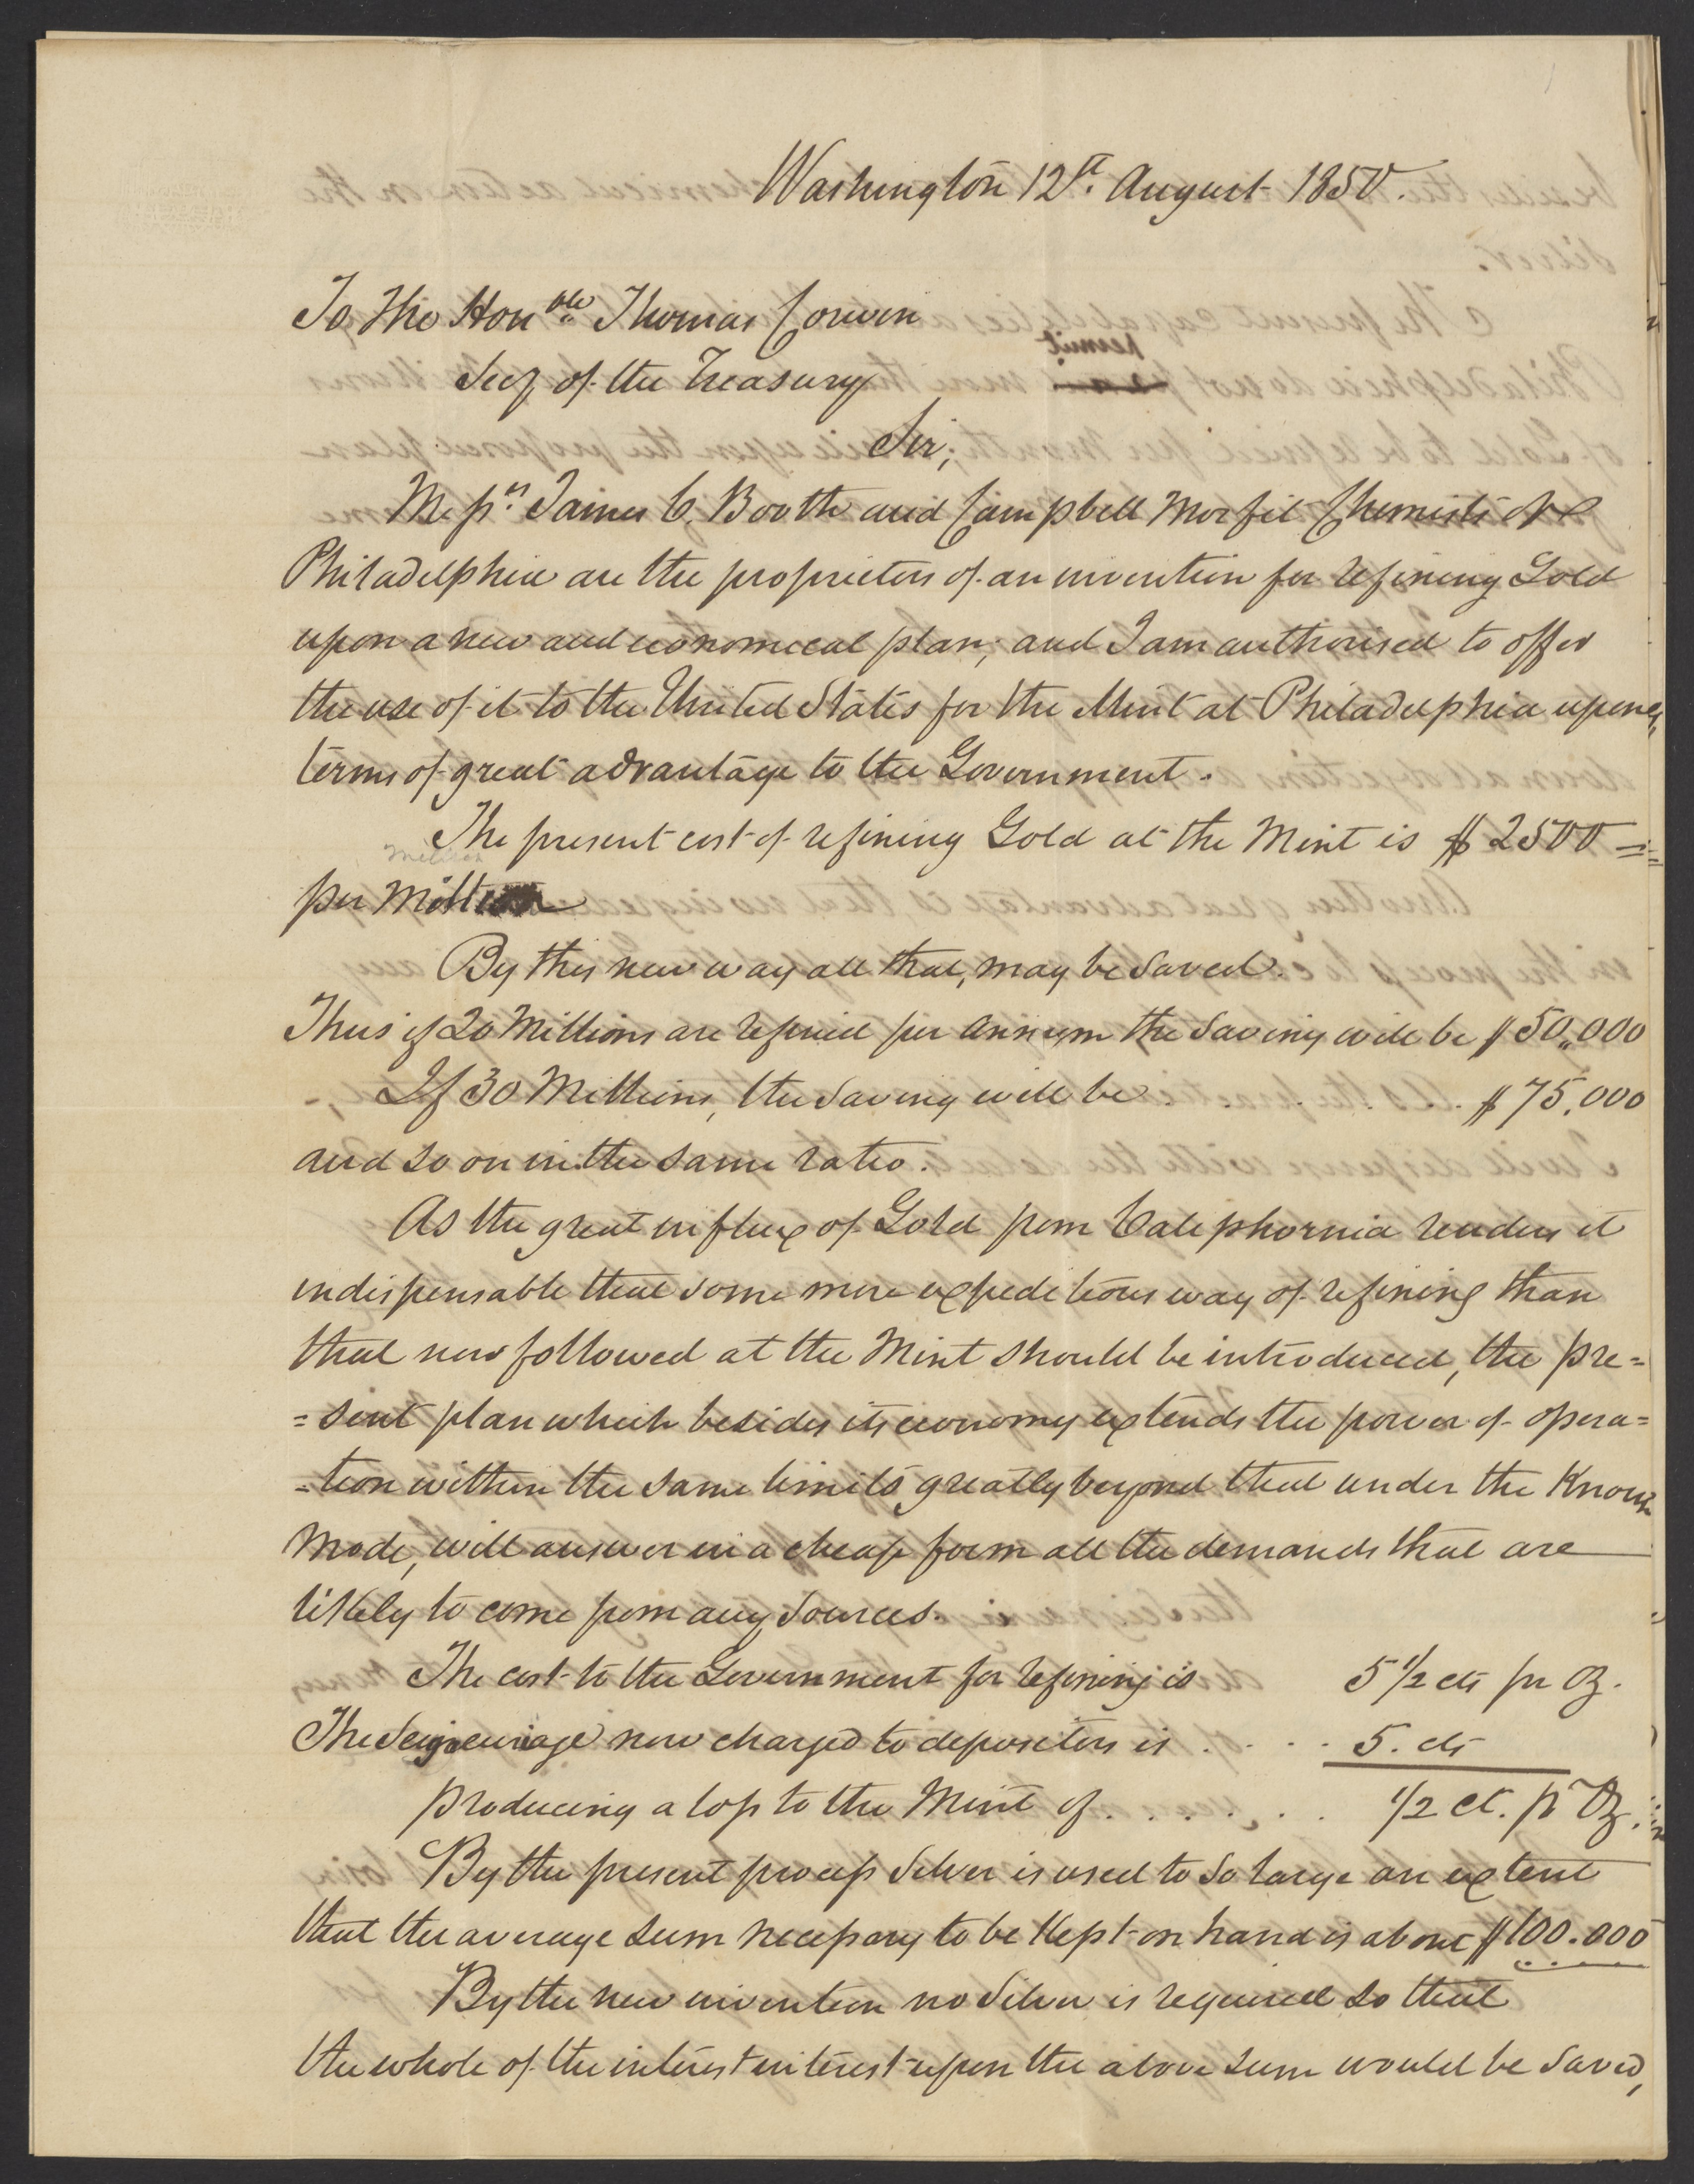 Washington 12th August 1850.
To The Honble Thomas Corwin
Secy of the Treasury
Sir;
Messrs James C. Booth and Campbell Morfit Chemists of
Philadelphia are the proprietors of an invention for refining Gold
upon a new and economical plan; and I am authorised to offer
the use of it to the United States for the Mint at Philadelphia upon
terms of great advantage to the Government.
The present cost of refining Gold at the Mint is $2500 =
million
per Million
By this new way all that, may be saved.
Thus if 20 Millions are refined per annum the saving will be $50,000
If 30 Millions, the saving will be . . . . . . $75,000
and so on in the same ratio.
As the great influx of Gold from Caliphornia renders it
indispensable that some more expeditious way of refining than
that now followed at the Mint should be introduced, the pre=
=sent plan which besides its economy extends the power of opera=
=tion within the same limits greatly beyond that under the Known
Mode, will answer in a cheap form all the demands that are
likely to come from any sources.
The cost to the Government for refining is 5 1/2 cts pr Oz.
The Seigneuriage now charged to depositors is . . . . 5. cts
producing a loss to the Mint of . . . . . . 1/2 ct. pr Oz.
By the present process Silver is used to so large an extent
that the average sum necessary to be Kept on hand is about $100.000
By the new invention no Silver is required so that
the whole of the interest interest upon the above sum would be saved,